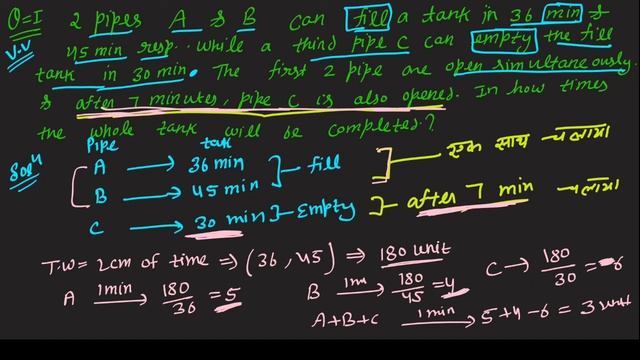 Q=I 2 pipes A & B can fill a tank in 36 min &
V.V 45 min resp.. while a third pipe C can empty the fill
tank in 30 min. The first 2 pipe are open simultaneously.
& after 7 minutes, pipe C is also opened. In how times
the whole tank will be completed.?
Solⁿ
Pipe tank
A → 36 min
B → 45 min
fill
एक साथ चलाया
C → 30 min Empty
after 7 min चलाया
T.W = LCM of time ⇒ (36, 45) ⇒ 180 unit
A 1min → 180/36 = 5
B 1m → 180/45 = 4
C → 180/30 = -6
A+B+C 1min → 5+4-6 = 3 unit